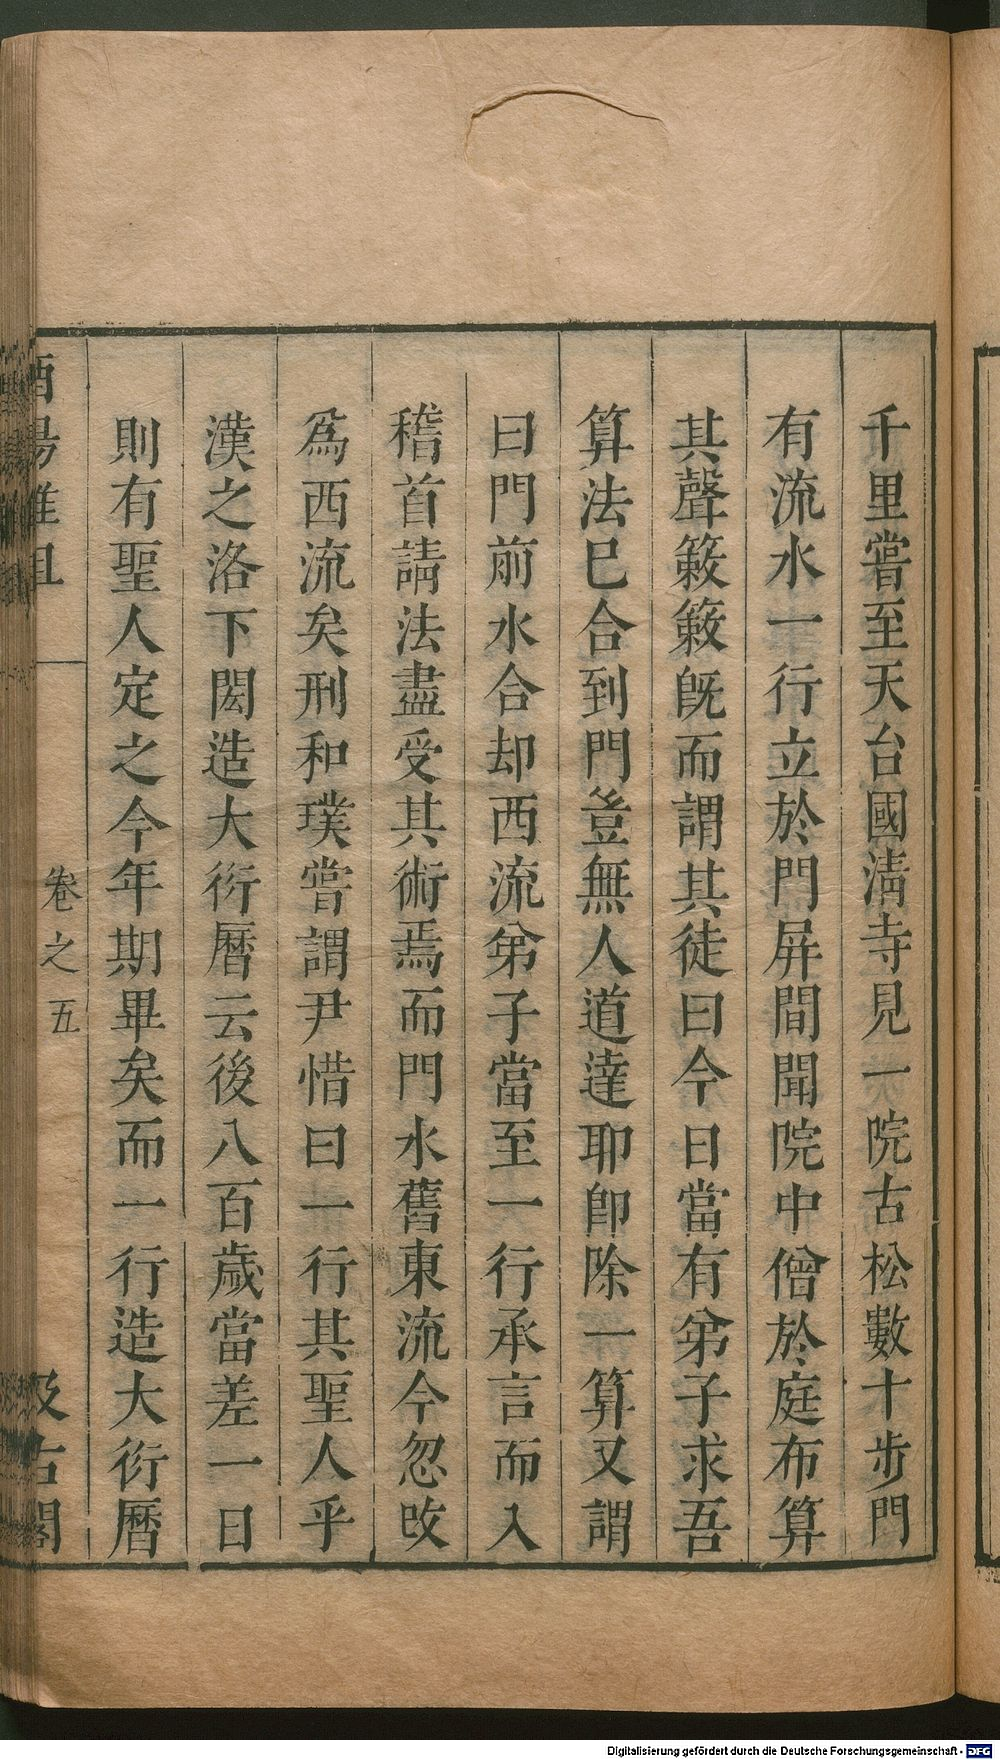 千里嘗至天台國清寺見一院古松數十步門
有流水一行立於門屏間聞院中僧於庭布算
其聲簌簌旣而謂其徒曰今日當有弟子求吾
算法巳合到門豈無人道達耶卽除一算又謂
曰門前水合却西流弟子當至一行承言而入
稽首請法盡受其術焉而門水舊東流今忽改
爲西流矣刑和璞嘗謂尹惜曰一行其聖人乎
漢之洛下閎造大衍曆云後八百歲當差一日
則有聖人定之今年期畢矣而一行造大衍曆
酉陽雜俎
卷之五
汲古閣
Digitalisierung gefördert durch die Deutsche Forschungsgemeinschaft - DFG